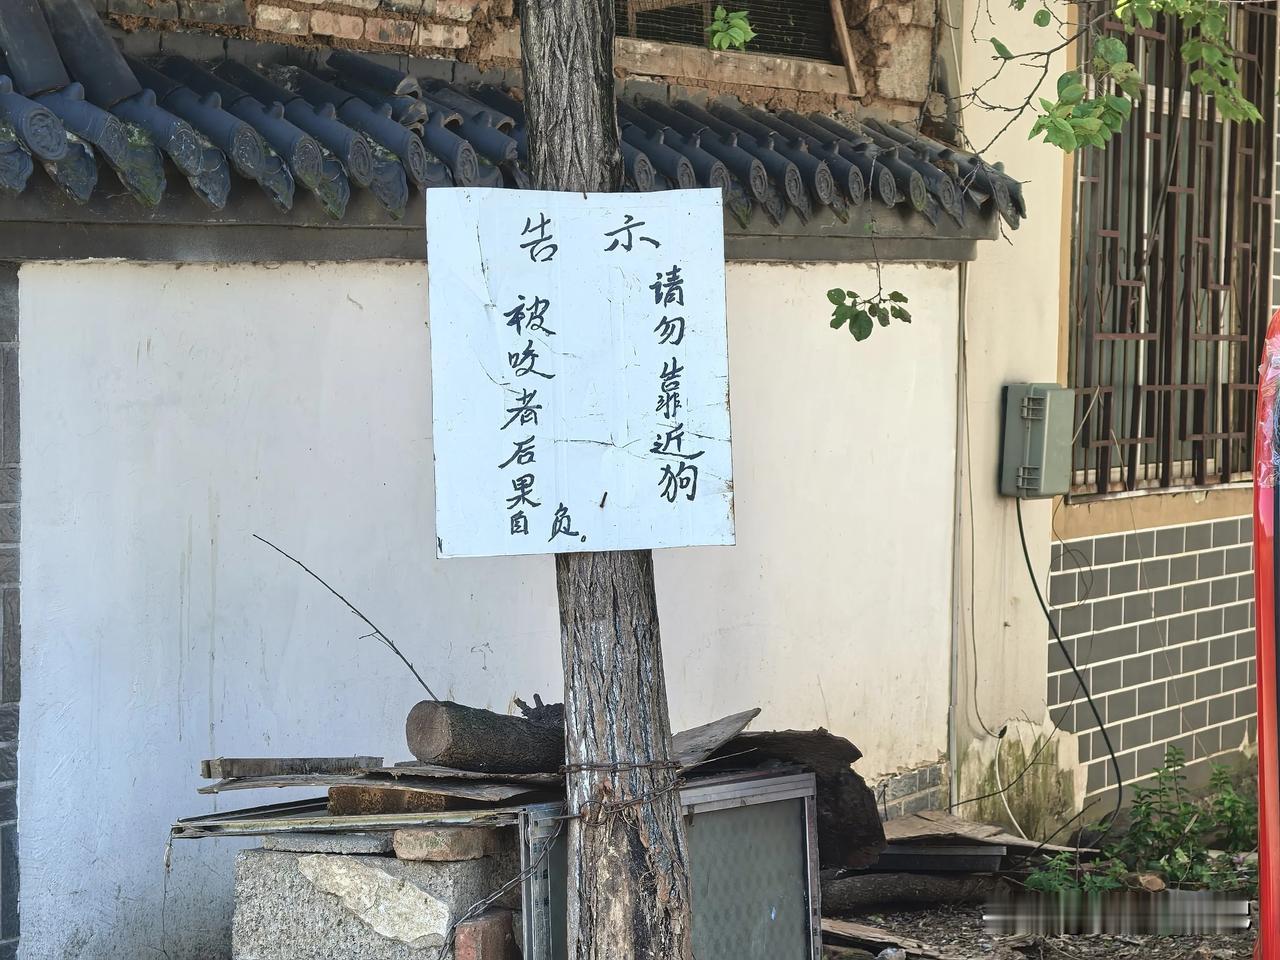 告示
请勿靠近狗
被咬者后果自负。